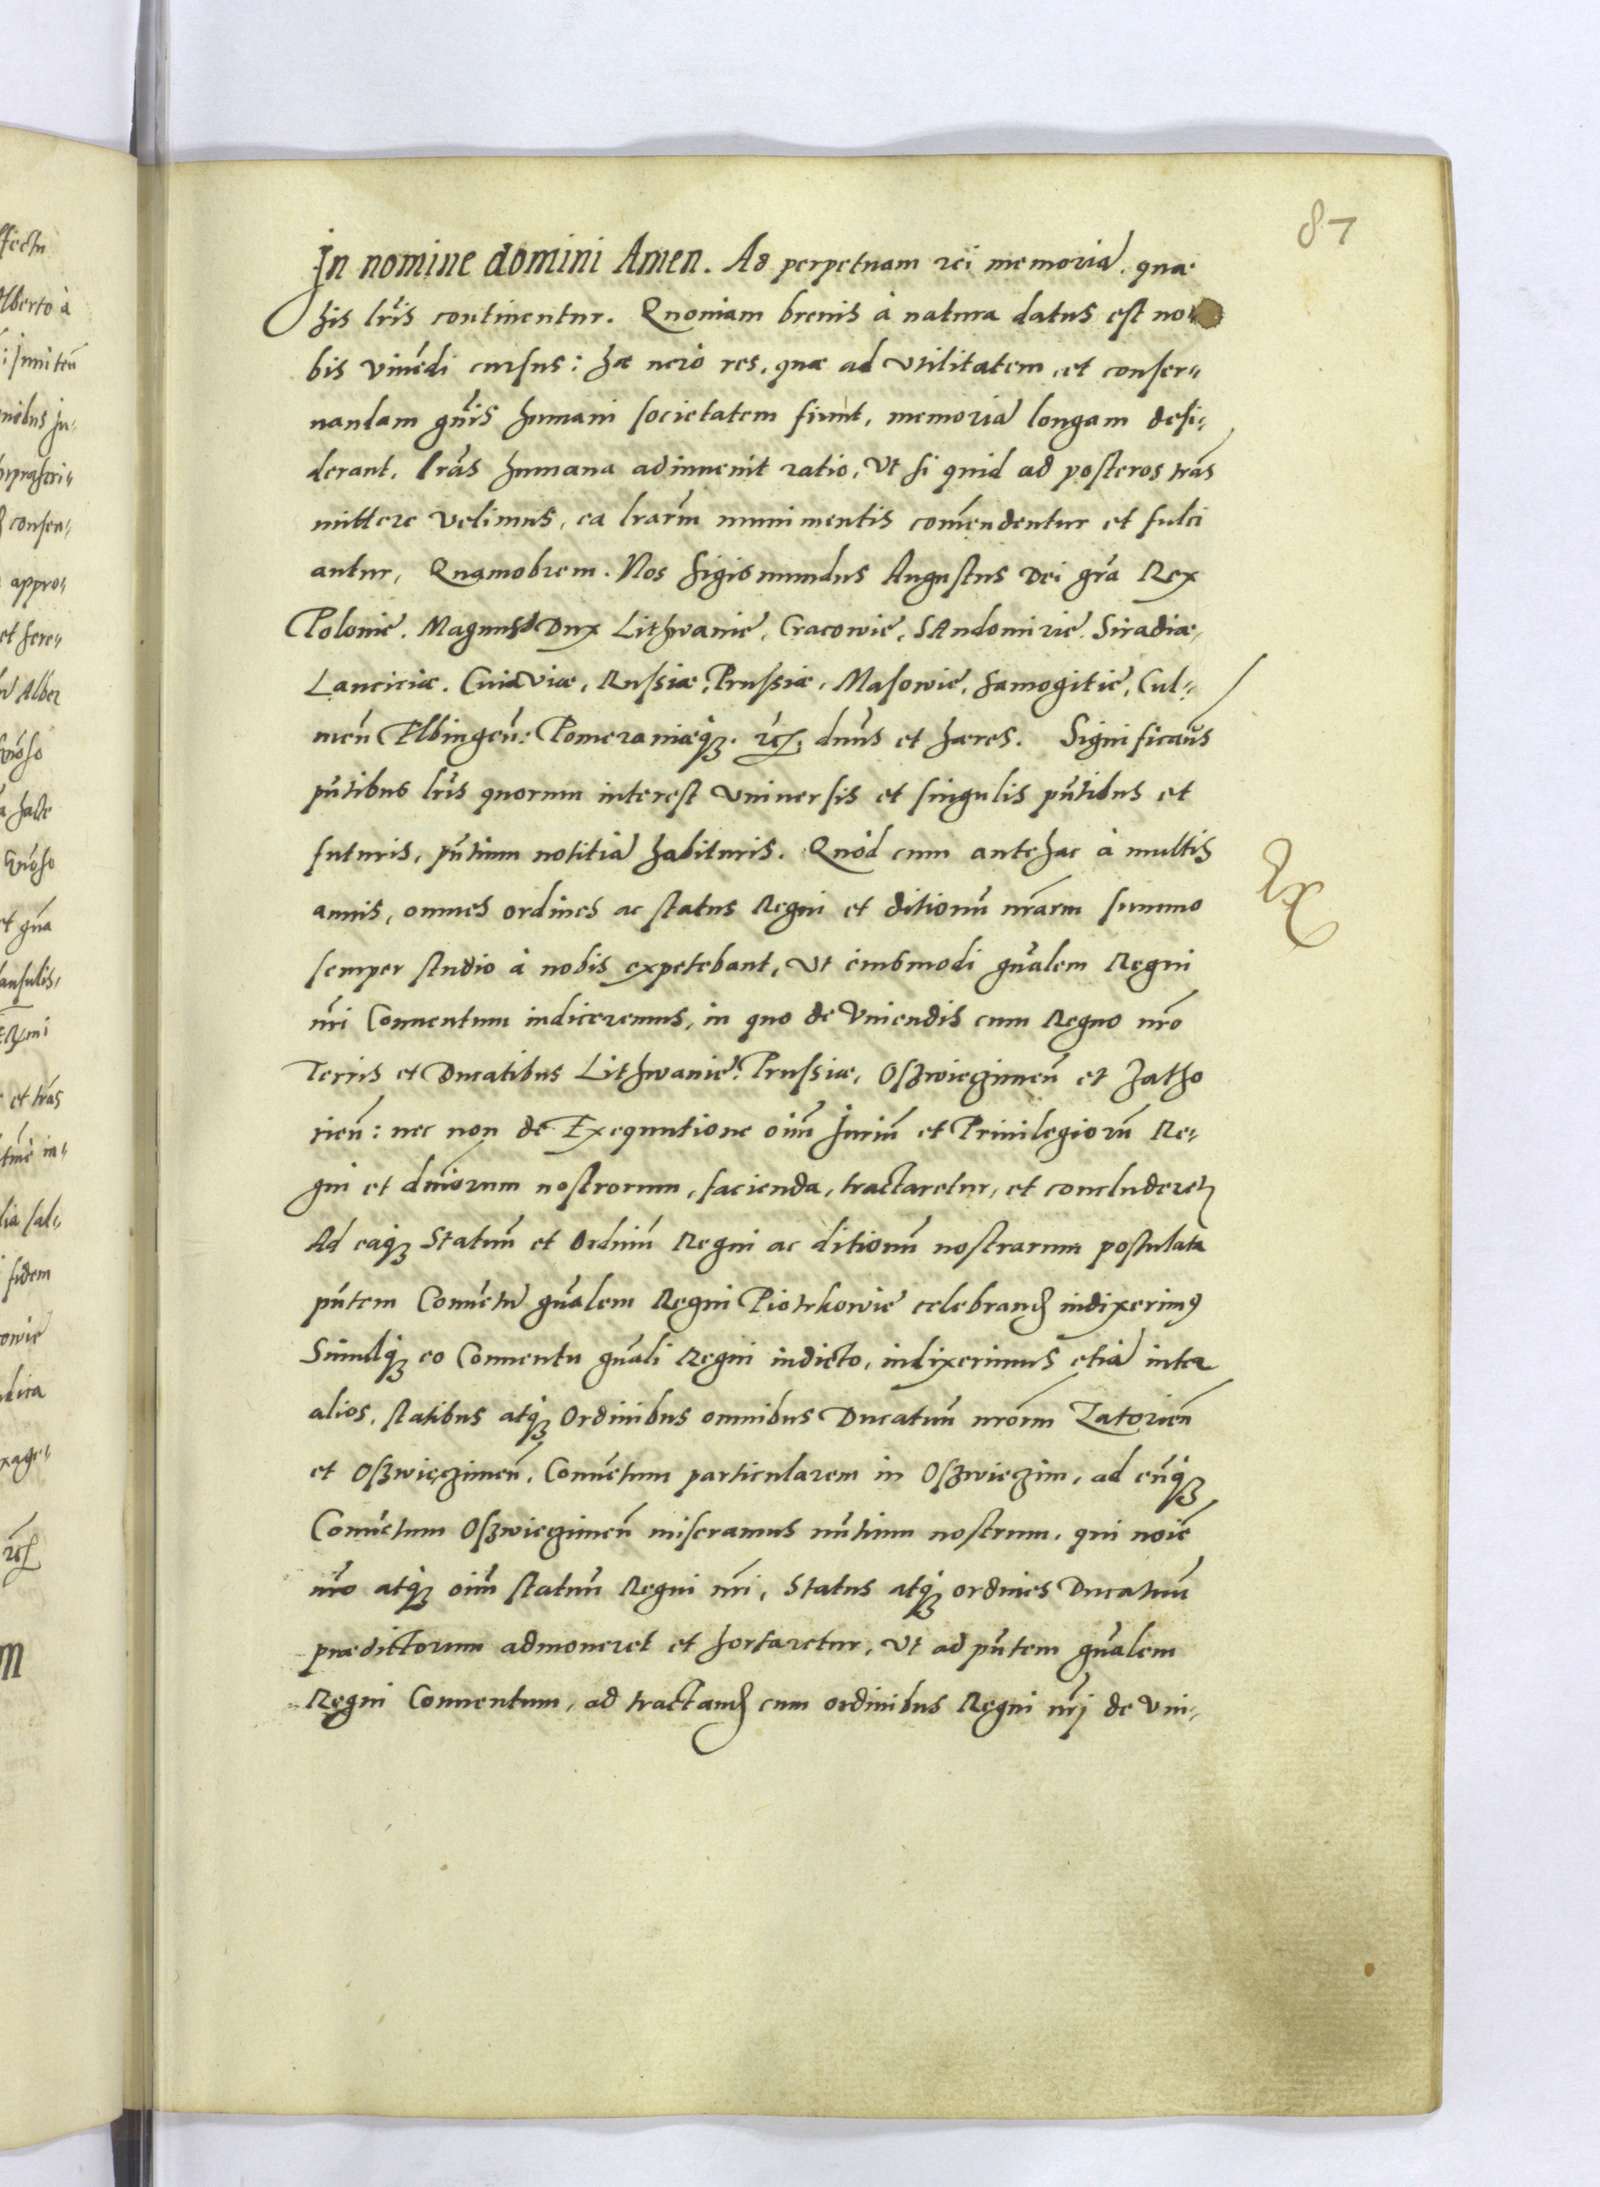 87
In nomine domini Amen. Ad perpetuam rei memoriã. quæ
his lr̃is continentur. Quoniam breuis à natura datus est no⸗
bis viuẽdi cursus: hæ uerò res, quæ ad vtilitatem, et conser⸗
uandam gñis humani societatem fiunt, memoriã longam desi⸗
derant. lrãs humana adinuenit ratio, Vt si quid ad posteros trãs
mittere velimus, ea lrarũm munimentis com̃endentur et fulci
antur, Quamobrem. Nos Sigismundus Augustus Dei gr̃a Rex
Polonie. Magnus Dux Lithwanie, Cracowie, SAndomirie. Siradiæ,
Lanciciæ. Cuiaviæ, Russiæ, Prussiæ, Masowie, Samogitie, Cul⸗
meñ Elbingeñ: Pomeraniæq3. etc. dñus et hæres. Significaũs
pñtibus lr̃is quorum interest vniuersis et singulis pñtibus et
futuris, pñtium notitiã habituris. Quòd cum antehac à multis
annis, omnes ordines ac status Regni et ditionũ nrãrm summo
semper studio à nobis expetebant, Vt eiusmodi gñalem Regni
nr̃i Conuentum indiceremus, in quo de Vniendis cum Regno nr̃o
Terris et Ducatibus Lithwanie, Prussiæ, Oszwieczimeñ et Zatho
rieñ: nec non de Exequutione oĩm Iuriũ et Priuilegiorũ Re⸗
gni et dñiorum nostrorum, facienda, tractaretur, et concluderet̃
Ad eaq3 Statuũ et Ordinũ Regni ac ditionũ nostrarum postulata
pñtem Conuẽtũ gñalem Regni Piotrkowie celebrand̃ indixerim9
Simulq3 eo Conuentu gñali Regni indicto, indixerimus etiã inter
alios, statibus atq3 Ordinibus omnibus Ducatuũ nrõrm Zatorieñ
et Oszwięczimeñ, Conuẽtum particularem in Oszwieczim, ad eũq3
Conuẽtum Oszwieczimeñ miseramus nũtium nostrum. qui noĩe
nr̃o atq3 oĩm statuũ Regni nr̃i, Status atq3 ordines Ducatuũ
prædictorum admoneret et hortaretur, Vt ad pñtem gñalem
Regni Conuentum, ad tractand̃ cum ordinibus Regni nr̃i de Vni⸗